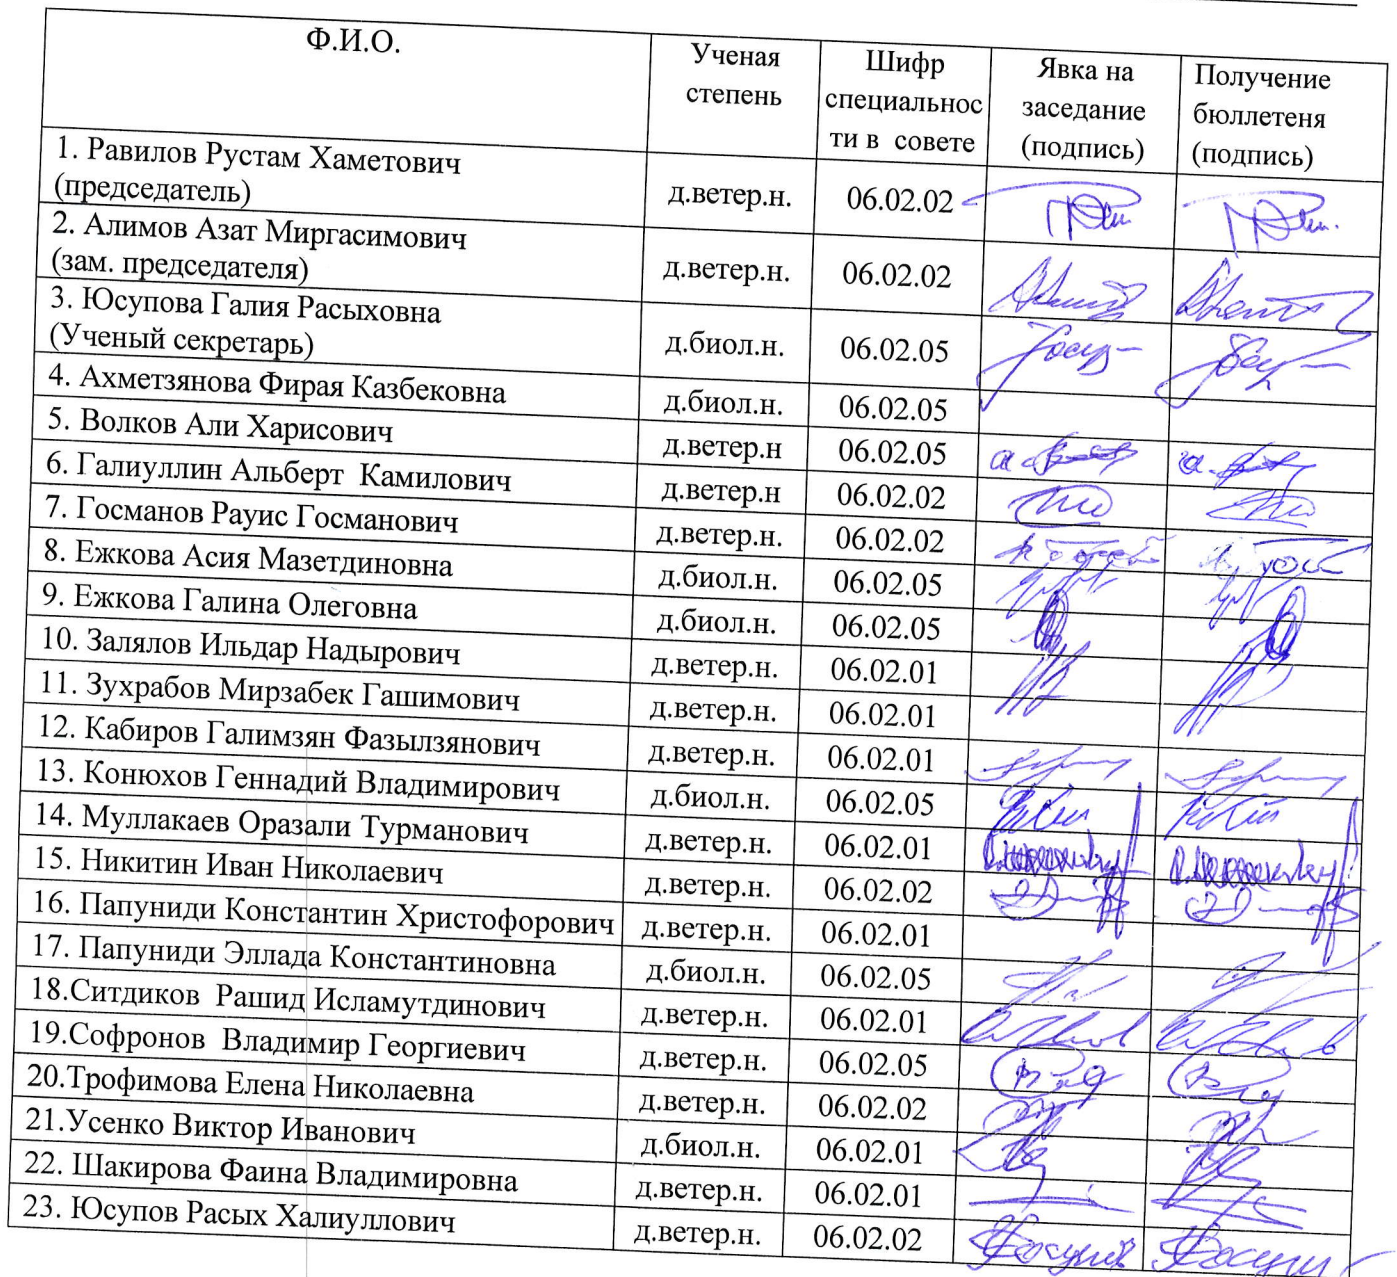 Ф.И.О. Ученая степень Шифр специальнос ти в совете Явка на заседание (подпись) Получение бюллетеня (подпись)
1. Равилов Рустам Хаметович
(председатель) д.ветер.н. 06.02.02
2. Алимов Азат Миргасимович
(зам. председателя) д.ветер.н. 06.02.02
3. Юсупова Галия Расыховна
(Ученый секретарь) д.биол.н. 06.02.05
4. Ахметзянова Фирая Казбековна д.биол.н. 06.02.05
5. Волков Али Харисович д.ветер.н 06.02.05
6. Галиуллин Альберт Камилович д.ветер.н 06.02.02
7. Госманов Рауис Госманович д.ветер.н. 06.02.02
8. Ежкова Асия Мазетдиновна д.биол.н. 06.02.05
9. Ежкова Галина Олеговна д.биол.н. 06.02.05
10. Залялов Ильдар Надырович д.ветер.н. 06.02.01
11. Зухрабов Мирзабек Гашимович д.ветер.н. 06.02.01
12. Кабиров Галимзян Фазылзянович д.ветер.н. 06.02.01
13. Конюхов Геннадий Владимирович д.биол.н. 06.02.05
14. Муллакаев Оразали Турманович д.ветер.н. 06.02.01
15. Никитин Иван Николаевич д.ветер.н. 06.02.02
16. Папуниди Константин Христофорович д.ветер.н. 06.02.01
17. Папуниди Эллада Константиновна д.биол.н. 06.02.05
18.Ситдиков Рашид Исламутдинович д.ветер.н. 06.02.01
19.Софронов Владимир Георгиевич д.ветер.н. 06.02.05
20.Трофимова Елена Николаевна д.ветер.н. 06.02.02
21.Усенко Виктор Иванович д.биол.н. 06.02.01
22. Шакирова Фаина Владимировна д.ветер.н. 06.02.01
23. Юсупов Расых Халиуллович д.ветер.н. 06.02.02